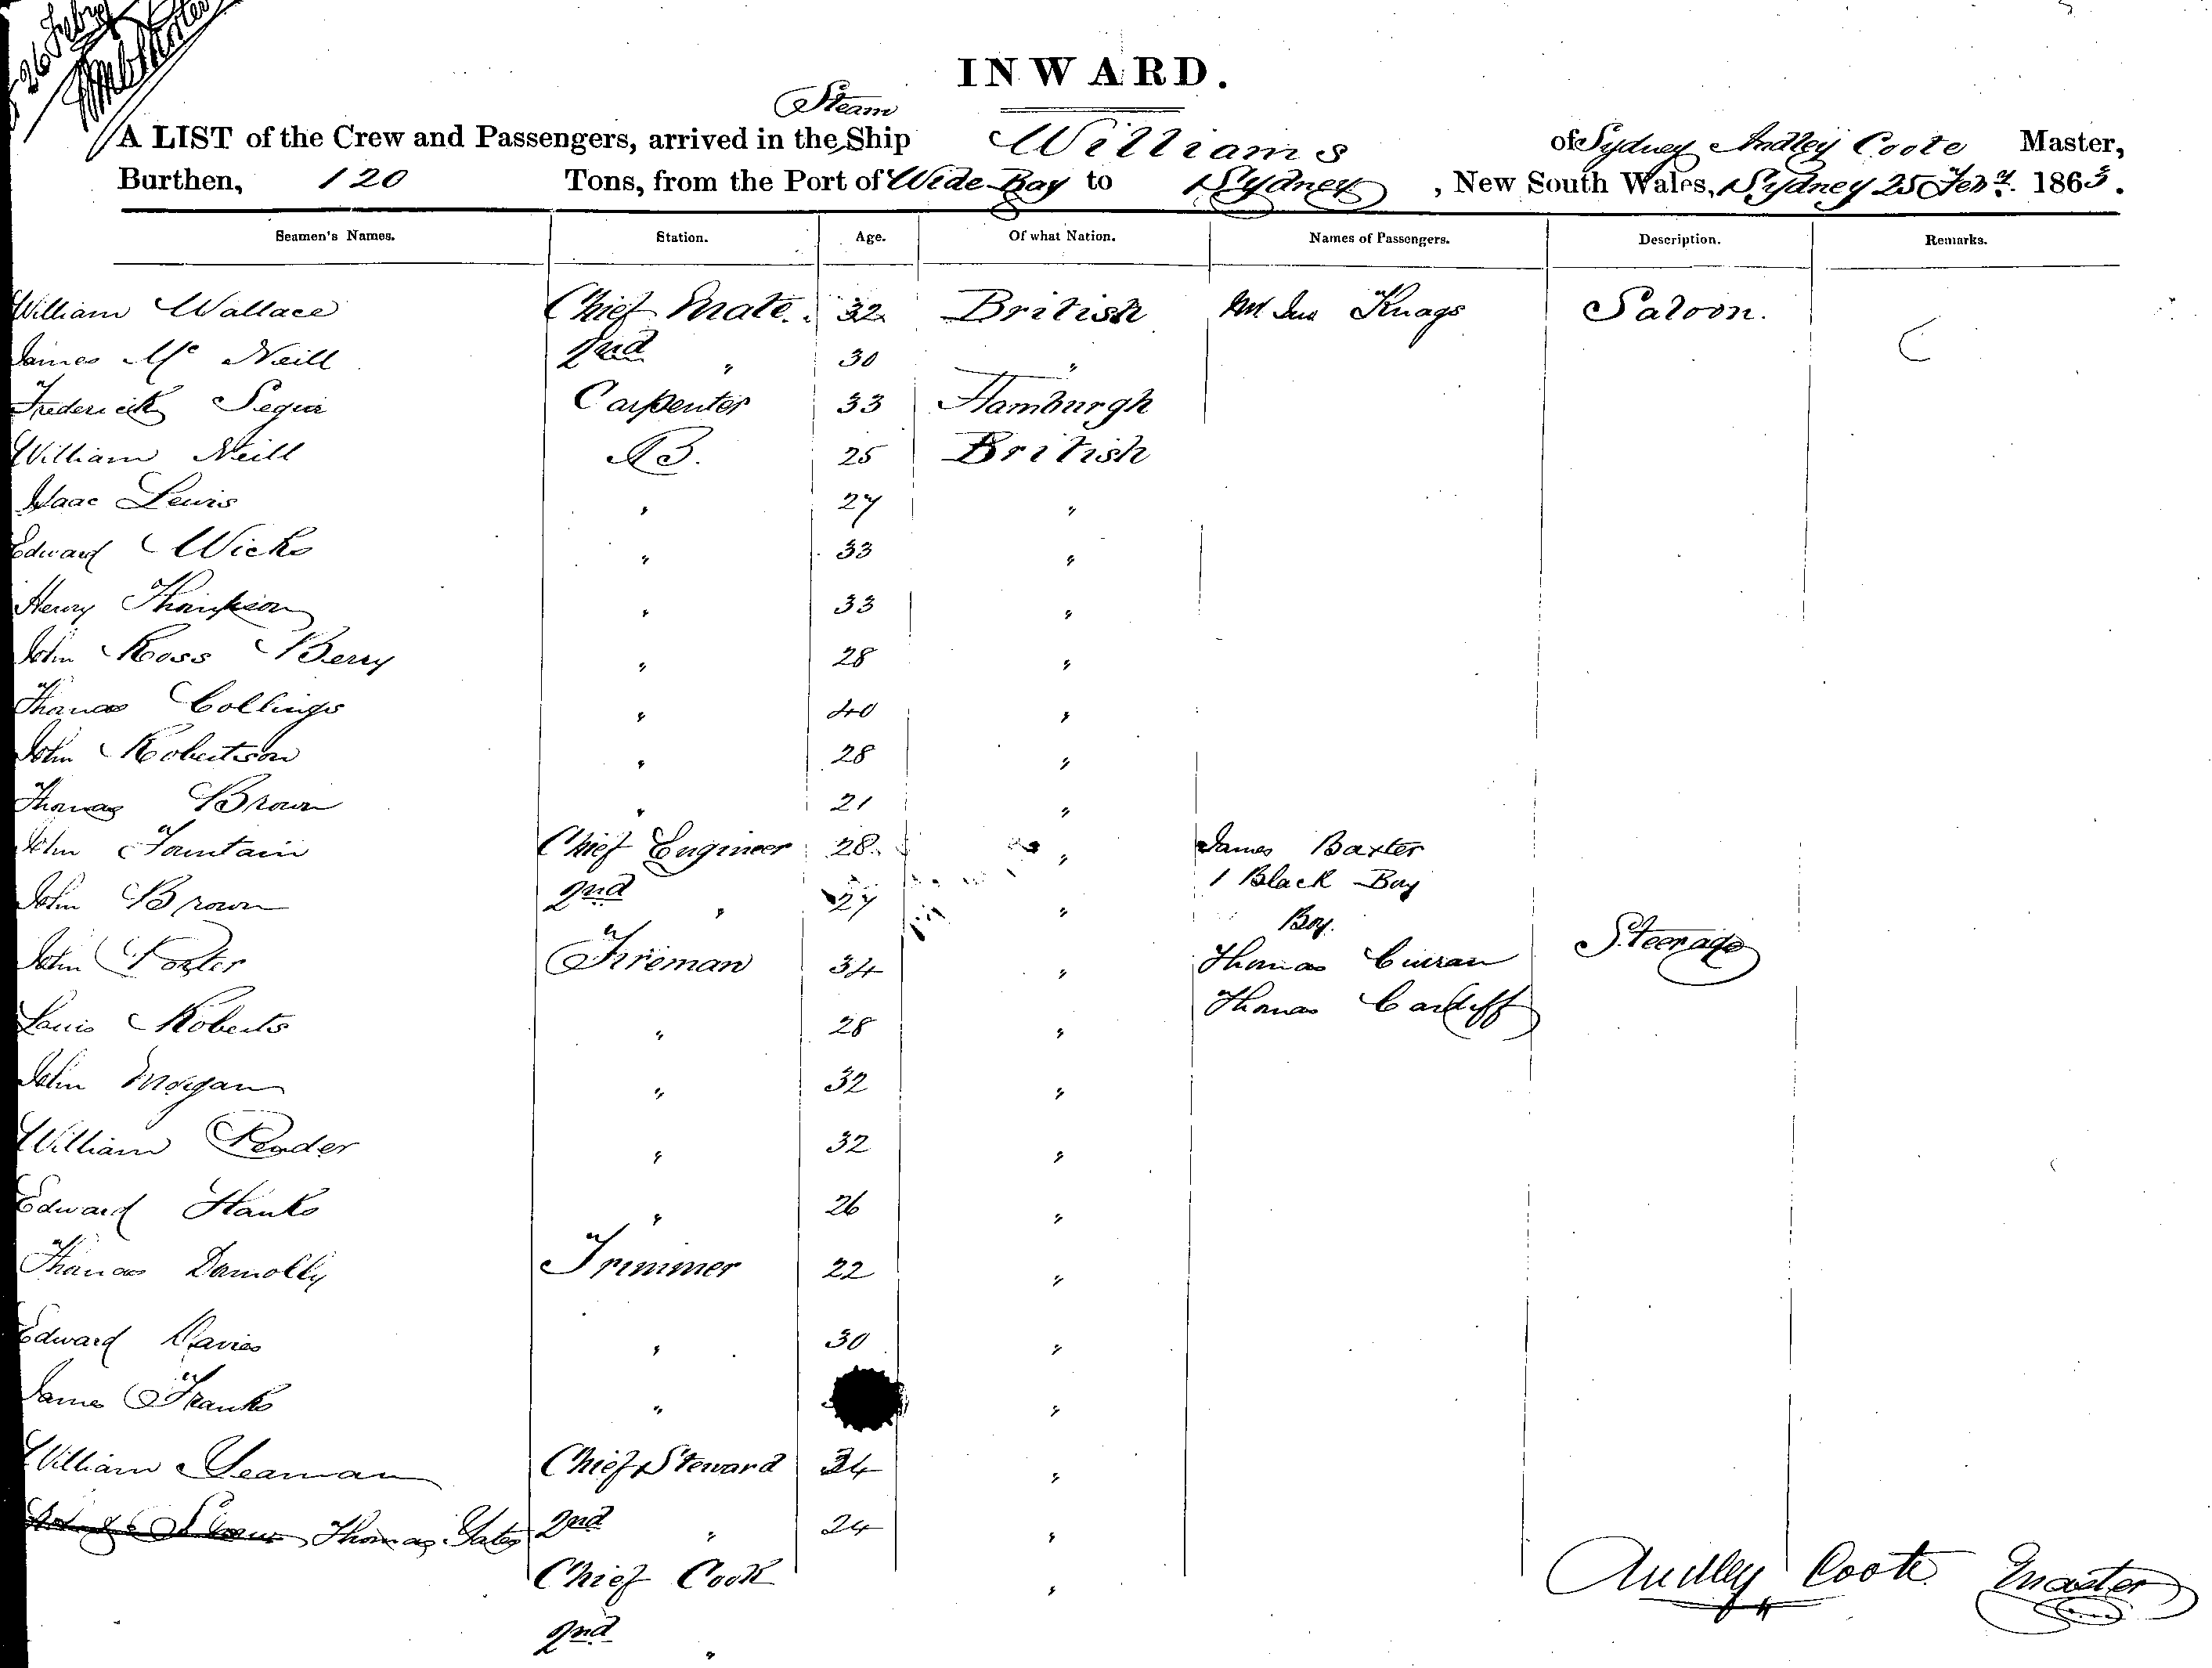 26 Feby
INWARD.
Steam
A LIST of the Crew and Passengers, arrived in the Ship Williams of Sydney Audley Coote Master,
Burthen, 120 Tons, from the Port of Wide Bay to Sydney, New South Wales, Sydney 25 Feby. 1863.
Seamen's Names. Station. Age. Of what Nation. Names of Passengers. Description. Remarks.
William Wallace Chief Mate. 32 British Knags Saloon.
James Mc Neill 2nd " 30 "
Frederick Carpenter 33 Hamburgh
William Neill AB. 25 British
Isaac Lewis " 27 "
Edward Wicks " 33 "
Henry Thompson " 33 "
John Ross Berry " 28 "
Thomas Collings " 40 "
John Robertson " 28 "
Thomas Brown " 21 "
John Fountain Chief Engineer 28 " James Baxter
1 Black Boy
John Brown 2nd " 27 "
Boy.
John Foster Fireman 34 " Thomas Curran Steerage
Thomas Cardiff
Louis Roberts " 28 "
John Morgan " 32 "
William Pender " 32 "
Edward Hanks " 26 "
Thomas Donnolly Trimmer 22 "
Edward Davies " 30 "
James Franks " "
William Seaman Chief Steward 34 "
Thomas Yates 2nd " 24 "
Chief Cook "
2nd "
Audley Coote Master